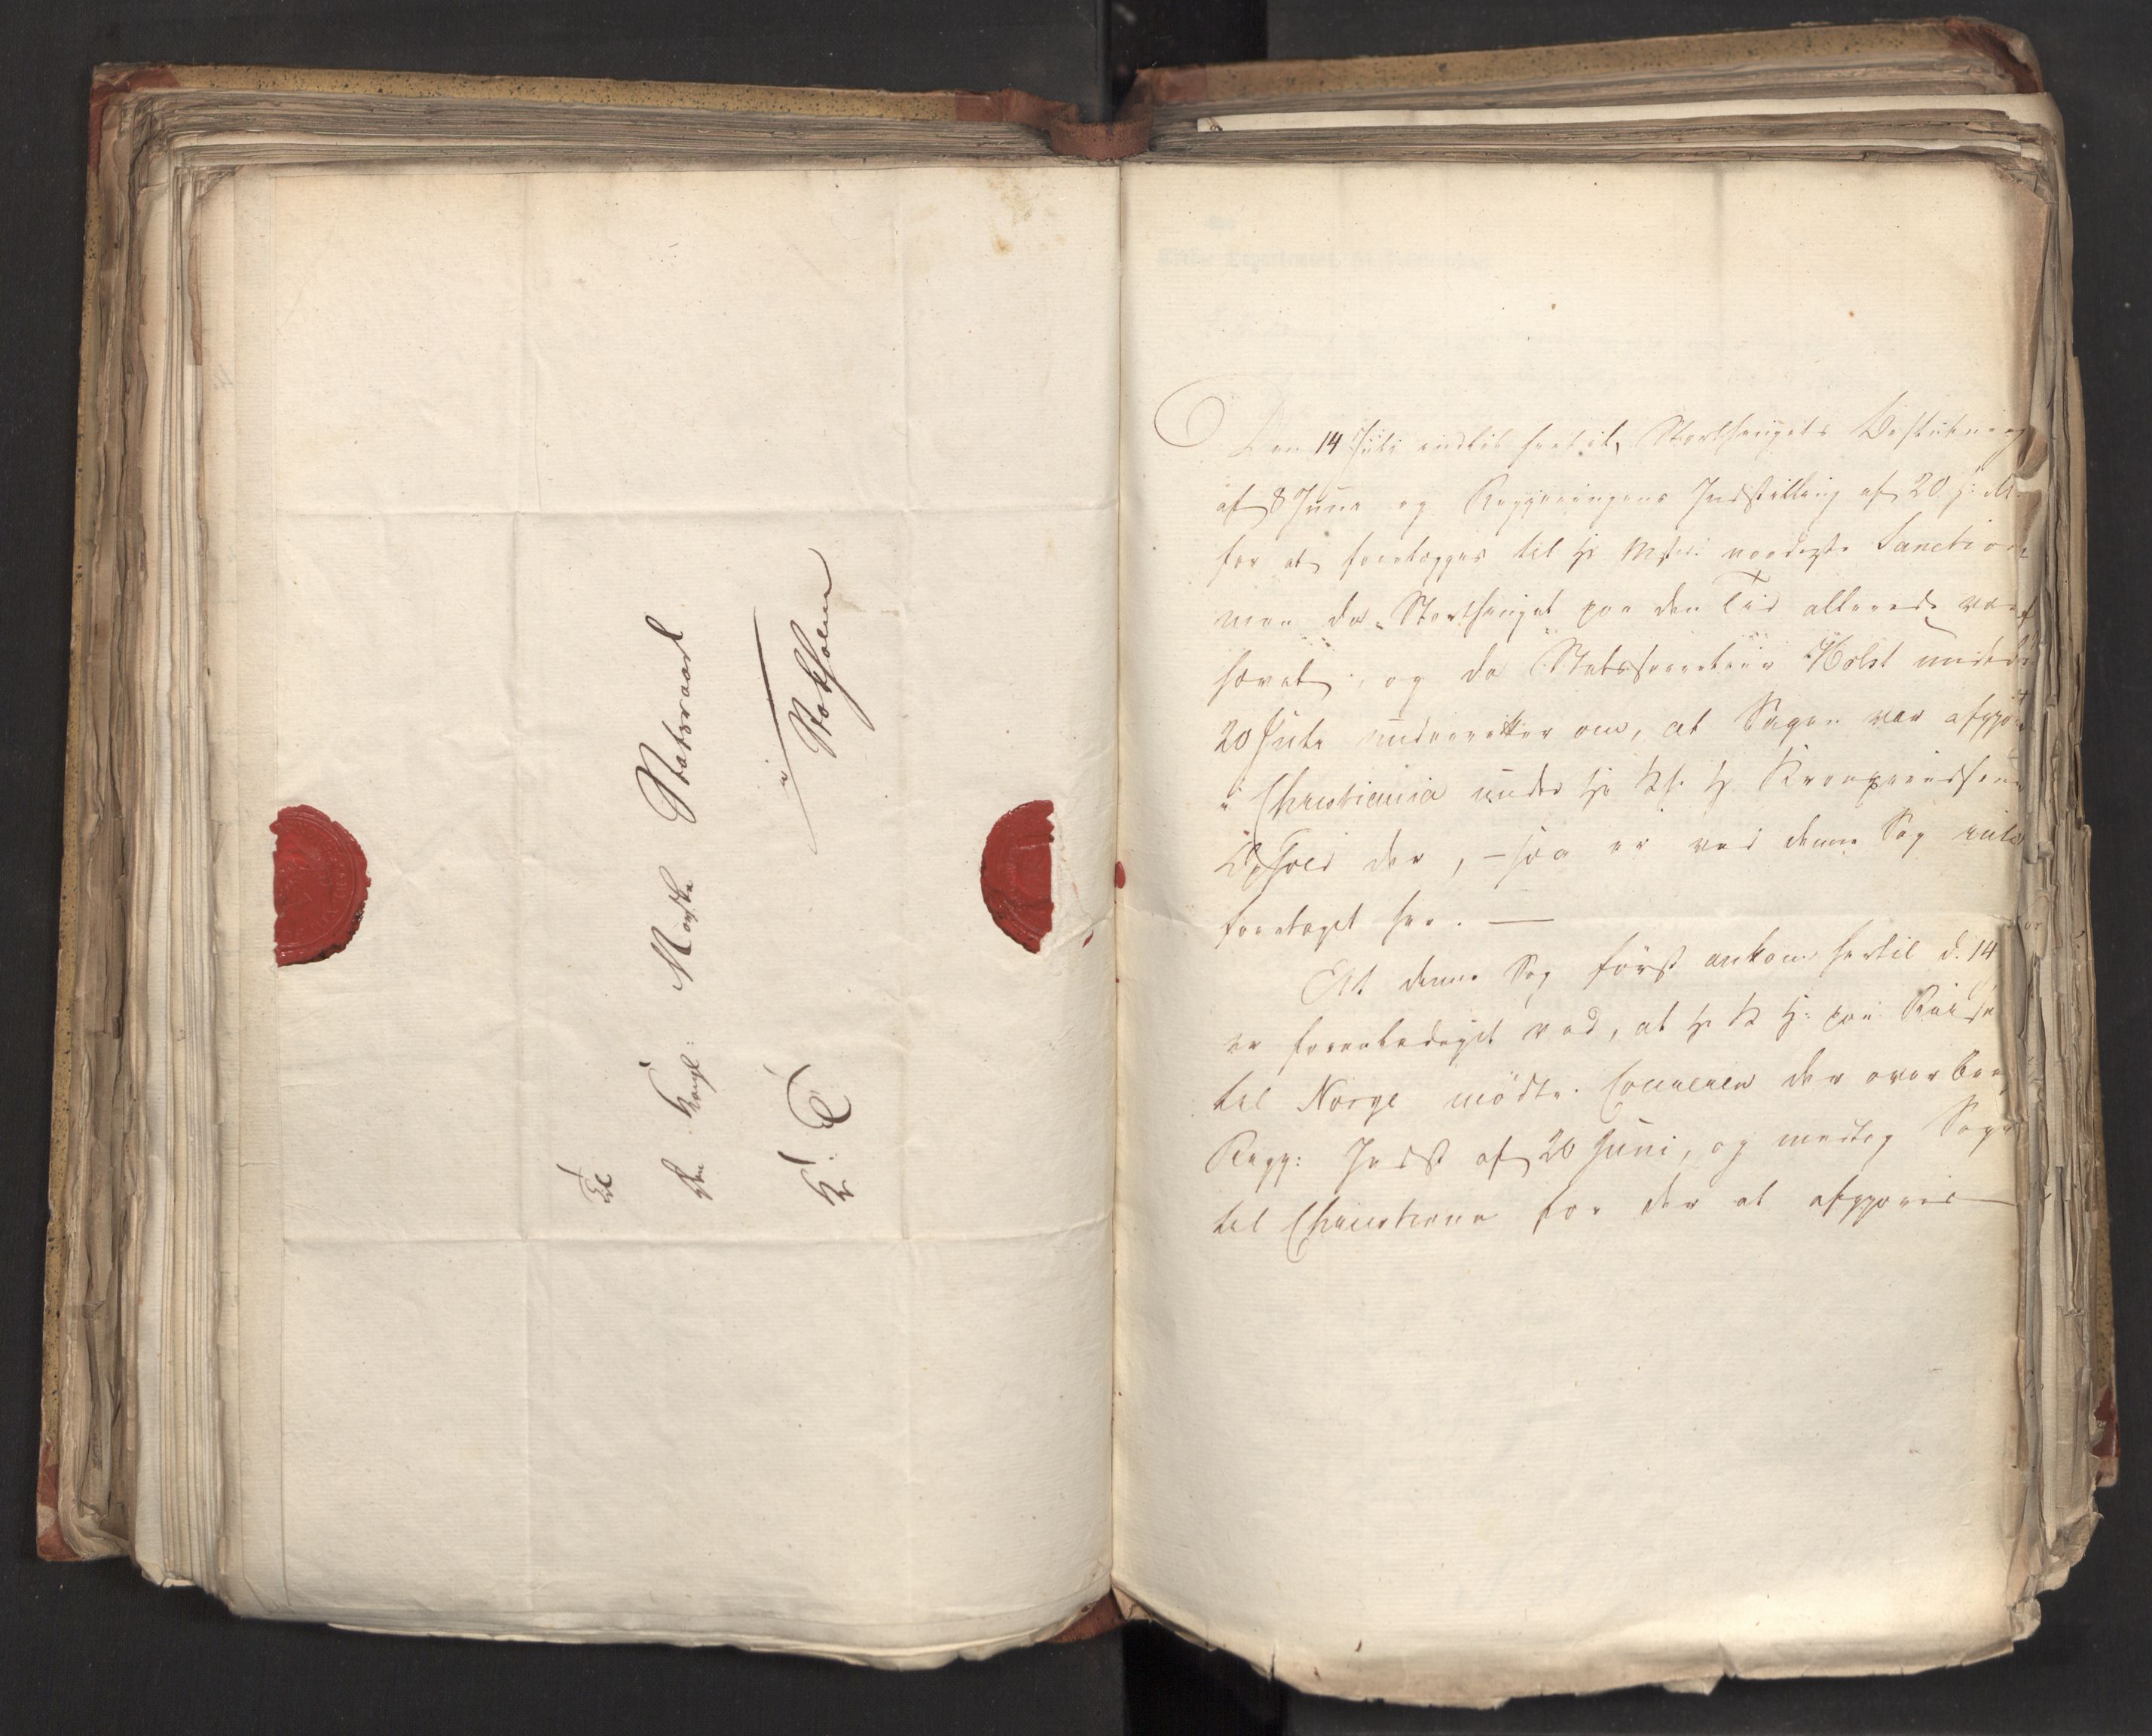 Til
Den Kongl: Norske Statsraad
i
Stokholm
K. T.
Den 14 Juli indløb hertil, Storthingets Beslutning
af 8 Juni og Regjeringens Indstilling af 20 s: M.
for at forelægges til Hs Mts: naadigste Sanction
men da Storthinget paa den Tid allerede var
hævet, og da Statssecretair Holst under
20 Juli underretter om, at Sagen var afgjort
i Christiania under Hs K. H. Kronprindsens
Ophold der, – saa er ved denne Sag intet
foretaget her. —
At denne Sag først ankom hertil d. 14
er foranlediget ved, at Hs K H: paa Reisen
til Norge mødte Coureren der overbragte
Regj: Indst af 20 Juni, og medtog Sagen
til Christiania for der at afgjøres —